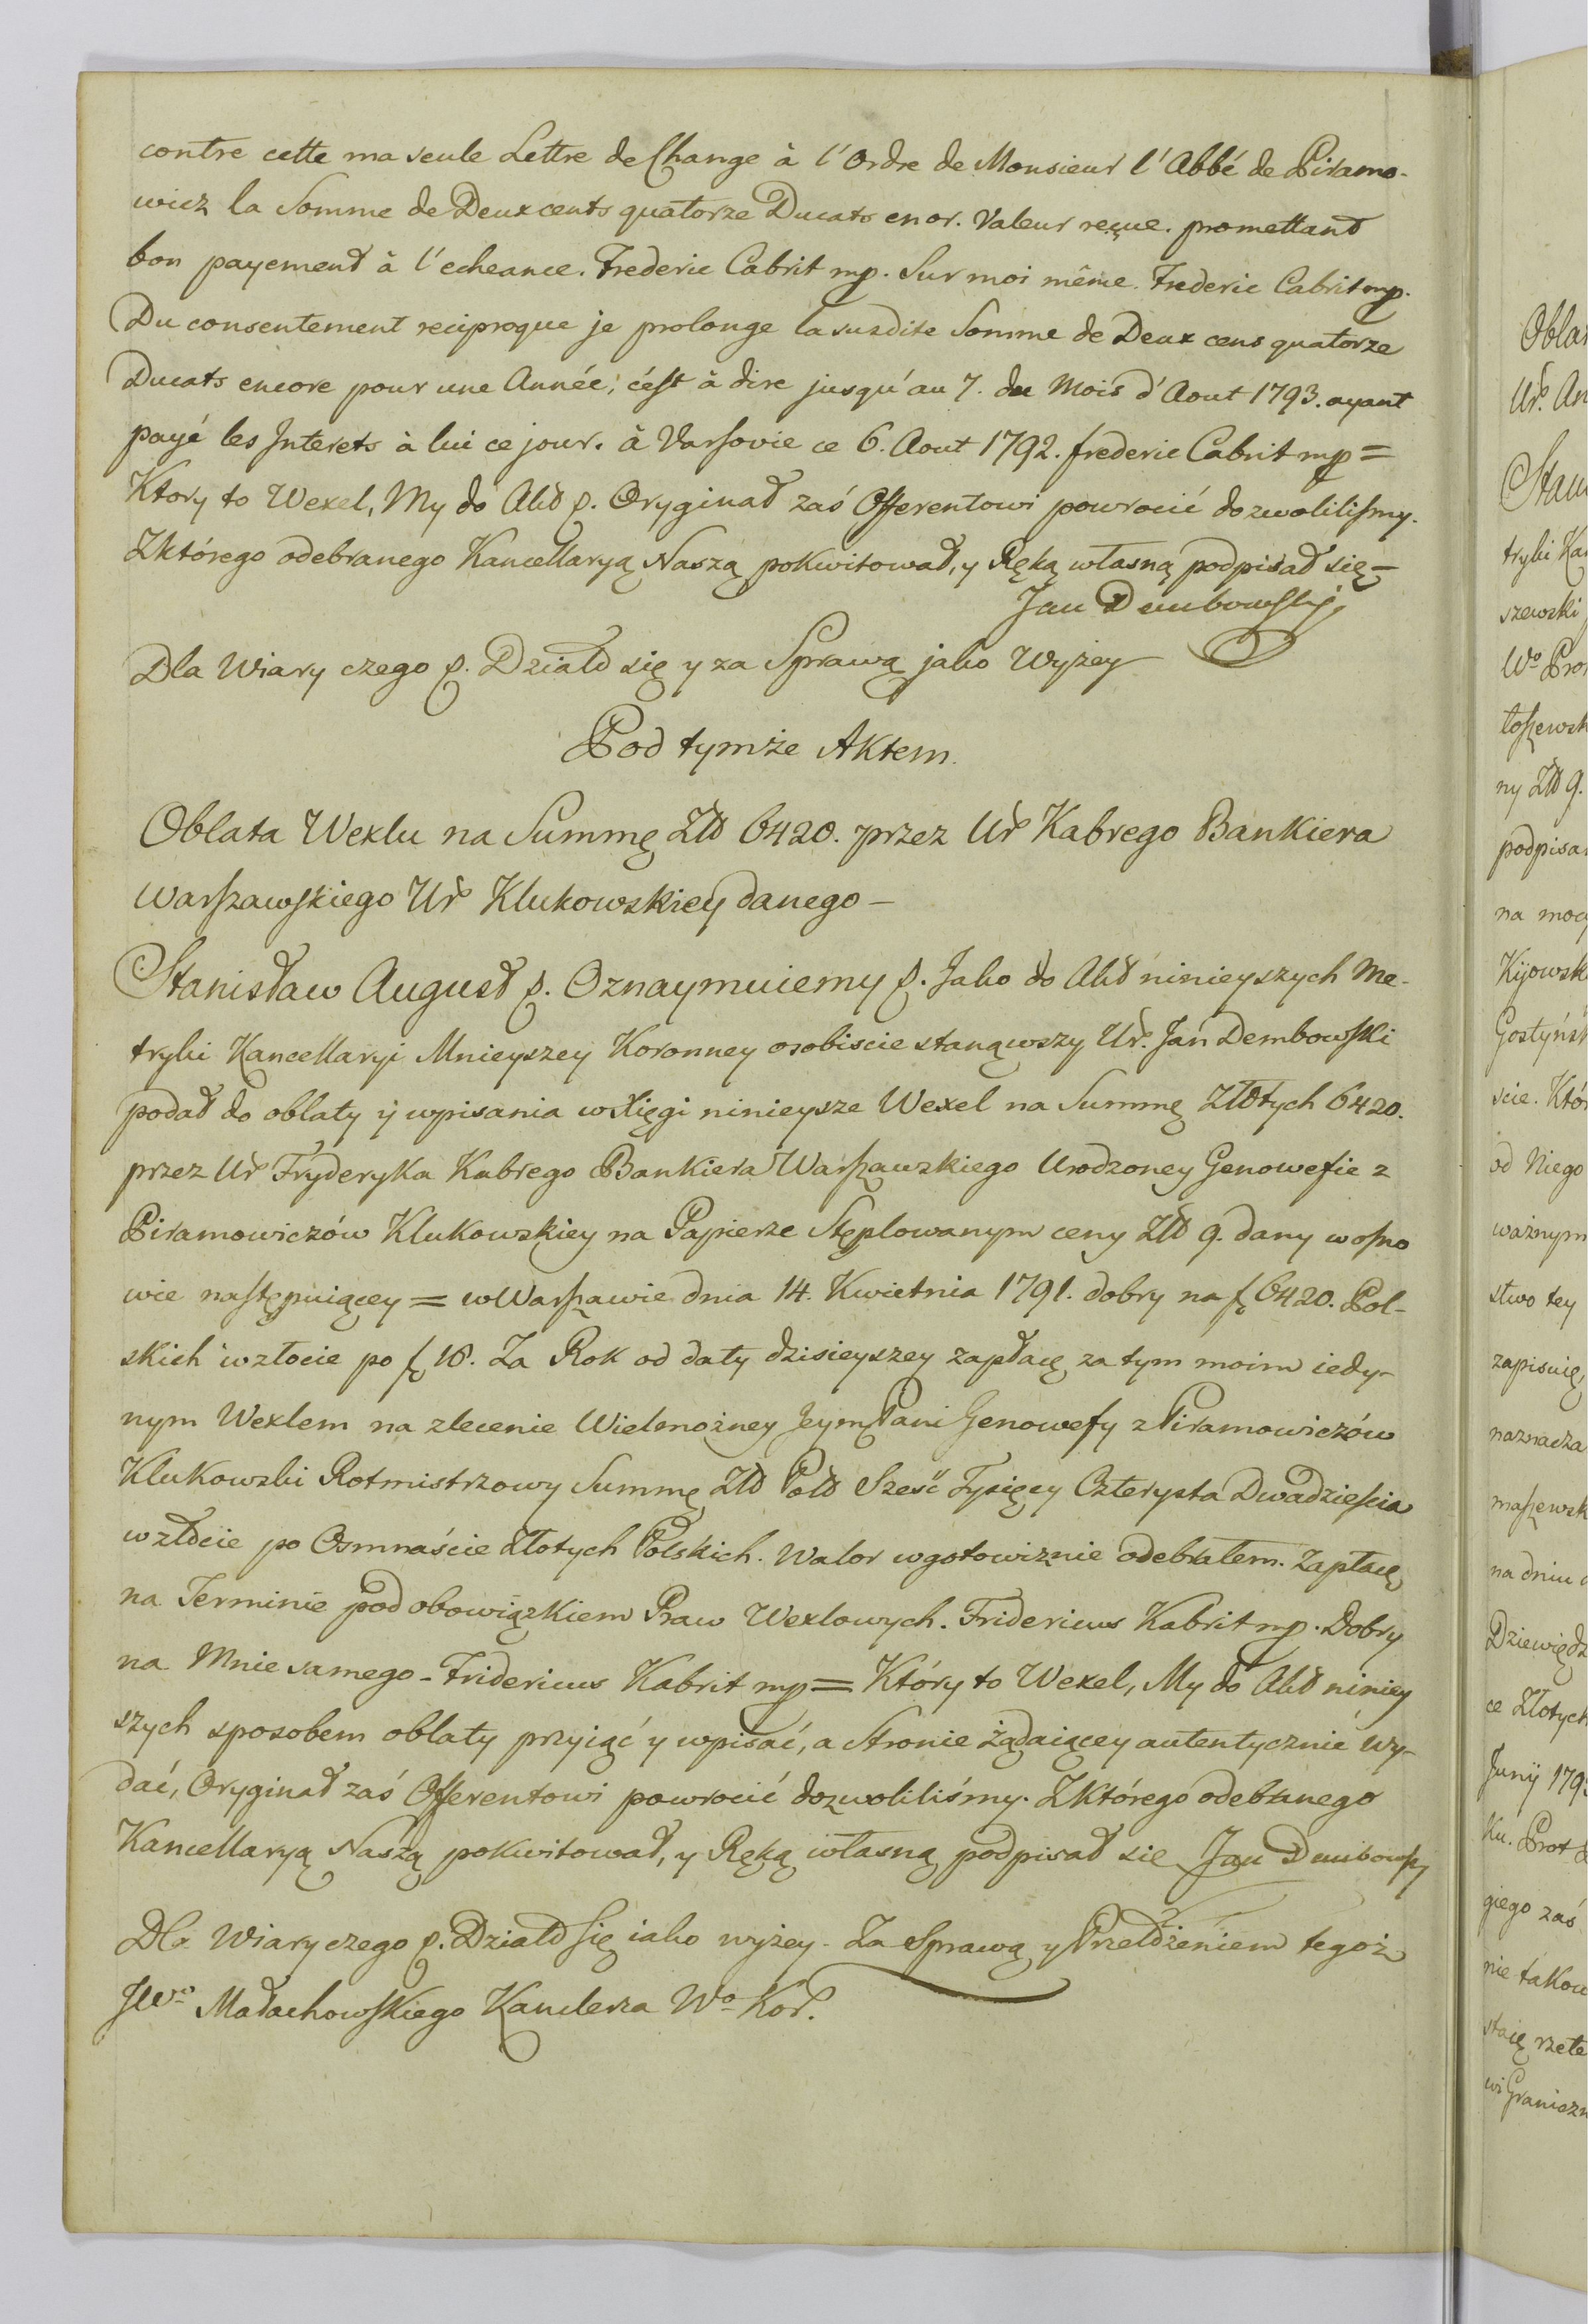 contre cette ma seule Lettre de Change à l'Ordre de Monsieur l'Abbé de Piramo-
wicz la Somme de Deux cents quatorze Ducats en or. Valeur reçue. promettant
bon payement à l'echeance. Frederic Cabrit mp. Sur moi même. Frederic Cabrit mp.
Du consentement reciproque je prolonge la susdite Somme de Deux cens quatorze
Ducats encore pour une Année; c'est à dire jusqu'au 7. du Mois d'Aout 1793. ayant
payé les Interets à lui ce jour. à Varsovie ce 6. Aout 1792. frederic Cabrit mp =
Ktory to Wexel, My do Akt p. Oryginał zaś Offerentowi powrocić dozwolilismy.
Zktórego odebranego Kancellaryą Naszą pokwitował, y Ręką własną podpisał się –
Jan Dembowski
Dla Wiary czego p. Działo się y za Sprawą jako Wyżey
Pod tymże Aktem.
Oblata Wexlu na Summę Złł 6420. przez Ur Kabrego Bankiera
Warszawskiego Ur Klukowskiey danego –
Stanisław August p. Oznaymuiemy p. Jako do Akt ninieyszych Me-
tryki Kancellaryi Mnieyszey Koronney osobiscie stanąwszy Ur. Jan Dembowski
podał do oblaty y wpisania w Xięgi ninieysze Wexel na Summę Złłtych 6420.
przez Ur Fryderyka Kabrego Bankiera Warszawskiego Urodzoney Genowefie z
Piramowiczów Klukowskiey na Papierze Stęplowanym ceny Złł 9. dany w osno
wie następuiącey = w Warszawie dnia 14. Kwietnia 1791. dobry na f 6420. Pol-
skich w złocie po f 18. Za Rok od daty dzisieyszey zapłacę za tym moim iedy-
nym Wexlem na zlecenie Wielmożney Jeym Pani Genowefy z Piramowiczów
Klukowski Rotmistrzowy Summę Złł Poll Sześć Tysięcy Czterysta Dwadzieścia
w złocie po Osmnaście złotych Polskich. Walor w gotowiznie odebrałem. Zapłacę
na Terminie pod obowiązkiem Praw Wexlowych. Fridericus Kabrit mp. Dobry
na Mnie samego – Fridericus Kabrit mp = Który to Wexel, My do Akt niniey
szych sposobem oblaty przyiąć y wpisać, a Stronie żądaiącey autentycznie wy-
dać, Oryginał zaś Offerentowi powrocić dozwoliliśmy. Zktórego odebranego
Kancellaryą Naszą pokwitował, y Ręką własną podpisał się Jan Dembowski
Dla Wiary czego p. Działo się iako wyżey – Za Sprawą y Przełożeniem tegoż
JWo Małachowskiego Kanclerza Wo Kor.
Ur. An
tryki Ka
szewski
Wo Pro
ny Złł 9.
podpisa
na mocy
Kijowsk
Gostyńsk
scie. Któ
od Niego
ważnym
stwo tey
zapisuię,
naznacza
maszewsk
na dniu
Dziewiędz
ce Złotych
Junij 179
ku. Prot
giego zaś
nie takow
staię rzete
wi Graniczn